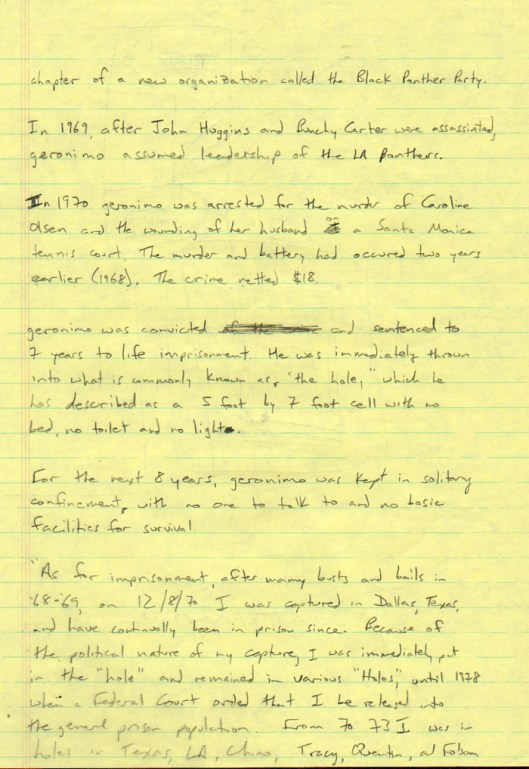 chapter of a new organization called the Black Panther Party.
In 1969, after John Huggins and Bunchy Carter were assassinated,
geronimo assumed leadership of the LA Panthers.
In 1970 geronimo was arrested for the murder of Caroline
Olsen and the wounding of her husband on a Santa Monica
tennis court. The murder and battery had occured two years
earlier (1968). The crime netted $18.
geronimo was convicted and sentenced to
7 years to life imprisonment. He was immediately thrown
into what is commonly known as, "the hole," which he
has described as a 5 foot by 7 foot cell with no
bed, no toilet and no light.
For the next 8 years, geronimo was kept in solitary
confinement, with no one to talk to and no basic
facilities for survival
"As for imprisonment, after many busts and bails in
'68-'69, on 12/8/70 I was captured in Dallas, Texas,
and have continually been in prison since. Because of
the political nature of my capture, I was immediately put
in the "hole" and remained in various "Holes," until 1978
when a Federal Court orded that I be released into
the general prison population. From 70 73 I was in
holes in Texas, LA, Chino, Tracy, Quentin, and Folsom